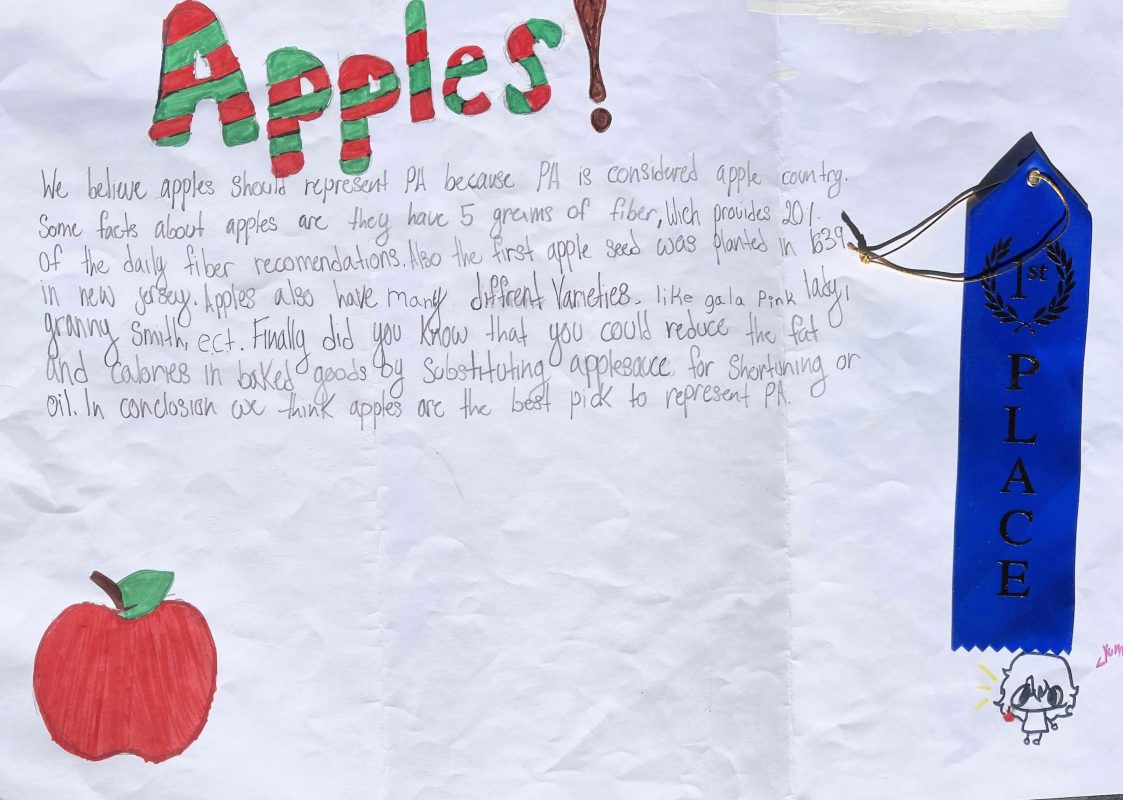 Apples!
We believe apples should represent PA because PA is considered apple country.
Some facts about apples are they have 5 grams of fiber, Wich provides 20%.
Of the daily fiber recomendations. Also the first apple seed was planted in 1639
in new jersey. Apples also have many diffrent Varieties. like gala Pink lady,
granny Smith, e.c.t. Finally did you Know that you could reduce the fat
and calories in baked goods by Substituting applesauce for Shortuning or
Oil. In conclusion we think apples are the best pick to represent PA.
1st
PLACE